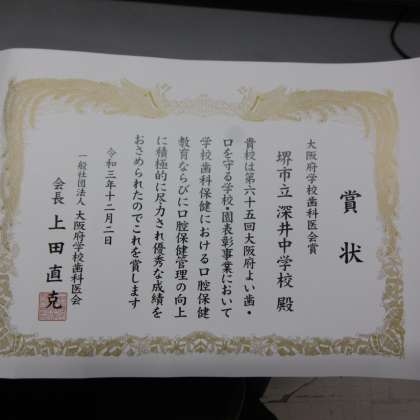 賞状
大阪府学校歯科医会賞
堺市立 深井中学校 殿
貴校は第六十五回大阪府よい歯・
口を守る学校・園表彰事業において
学校歯科保健における口腔保健
教育ならびに口腔保健管理の向上
に積極的に尽力され優秀な成績を
おさめられたのでこれを賞します
令和三年十二月二日
一般社団法人 大阪府学校歯科医会
会長 上田直克